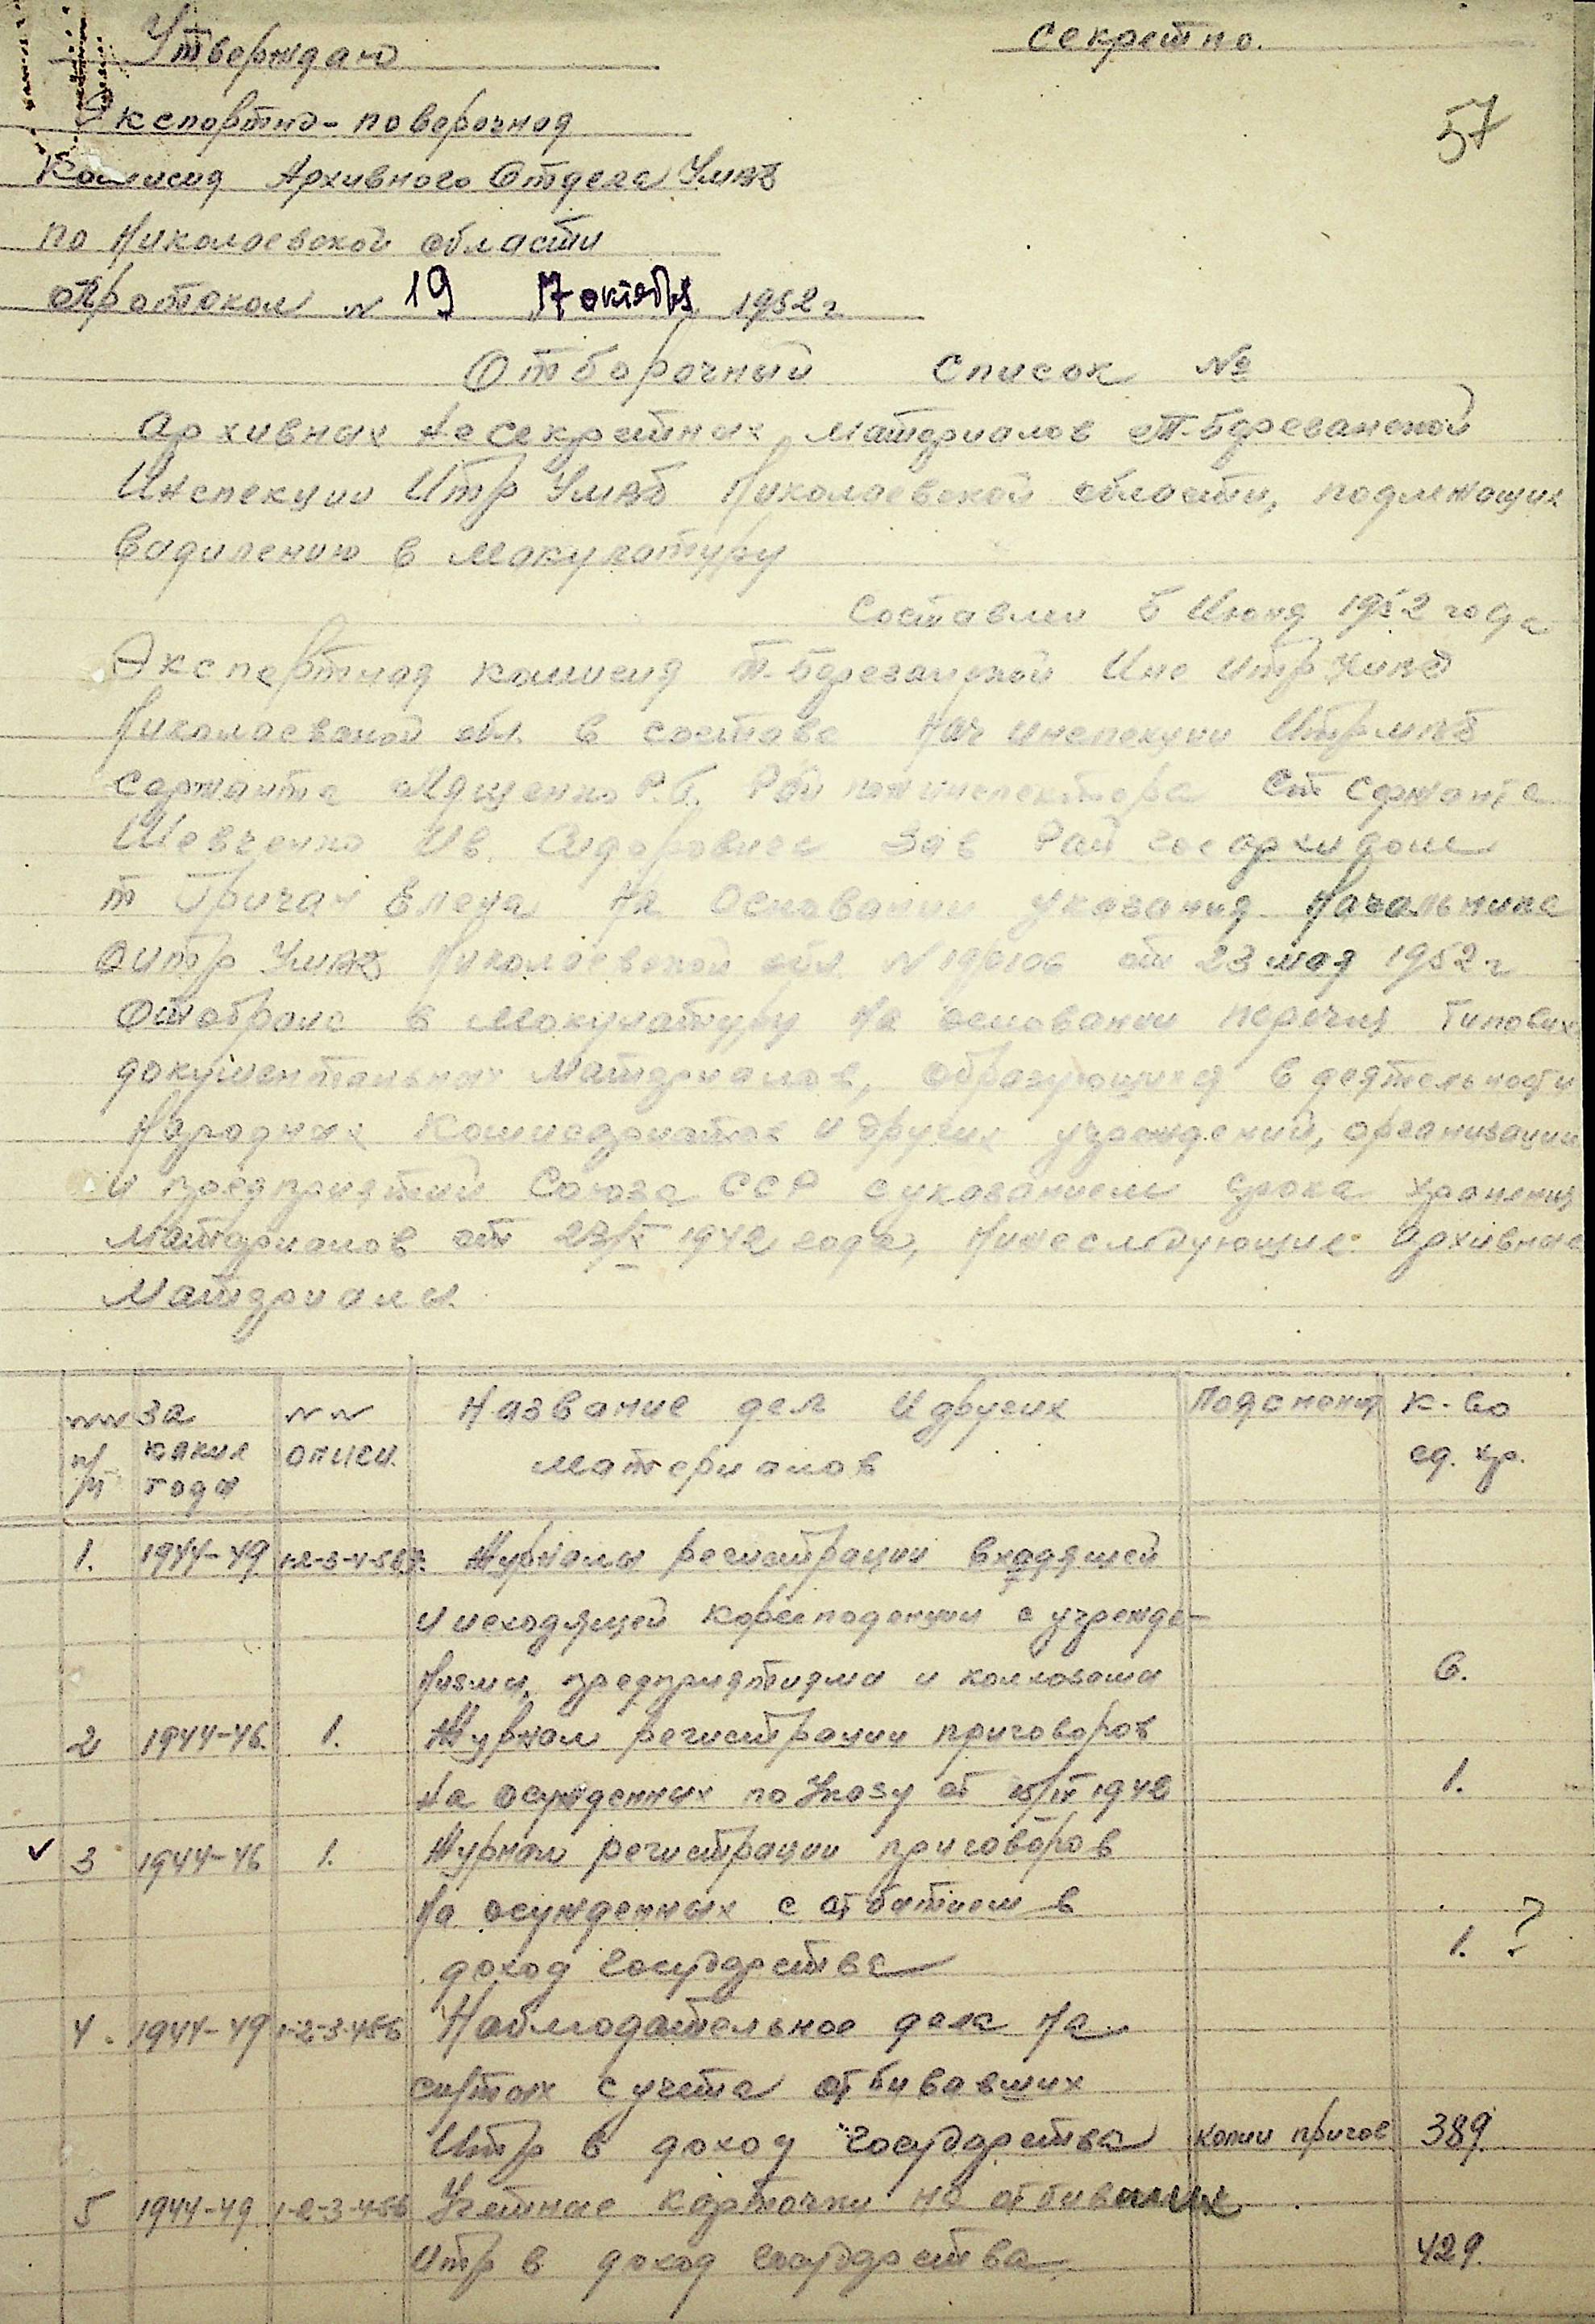 Утверждаю
Секретно.
57
Экспортно-поверочная
Комисия Архивного Отдела УМВД
по Николаевской области
Протокол N 19 17 октября 1952 г
Отборочный список №
архивных несекретных материалов Т-Березанской
Инспекции Итр УМВД Николаевской области, подлежащих
видилению в макулатуру
Составлен 5 Июня 1952 года
Экспертная комисия Т-Березанской Инс итр УМВД
Николаевской обл. в составе Нач инспекции Итр МВД
сержанта Р.Б. Рай пом инспектора Ст Сержанта
Шевченко Ив. Сидоровича Зав Рай госархивом
т Гричан Елена На Основании указания Начальника
Оитр УМВД Николаевской обл. N от 23 мая 1952 г
Отобрана в Макулатуру на основании перечня типових
документальных материалов, образующихся в деятельности
Народных Комисариатов и других учреждений, организации
и предприятий Союза ССР с указанием срока хранения
материалов от 1942 года, Нижеследующие архивные
Материалы.
NN п/п за какие года NN описи. Название дел и других материалов Пояснения к-во ед. хр.
1. 1944-49 Журналы регистрации входящей
и исходящей коресподенции с учрежде-
ниями, предприятиями и колхозами 6.
2 1944-46. 1. Журнал регистрации приговоров
на осужденных по Указу от 15/IV 1942 1.
✓ 3 1944-46 1. Журнал регистрации приговоров
на осужденных с отбитием в
доход государства 1. ?
4. 1944-49 1-2-3-4-5-6 Наблюдательное дела на
снятых с учета отбивавших
Итр в доход государства копии пригов 389.
5 1944-49 1-2-3-4-5-6 Учетные карточки на отбивших
итр в доход государства. 429.